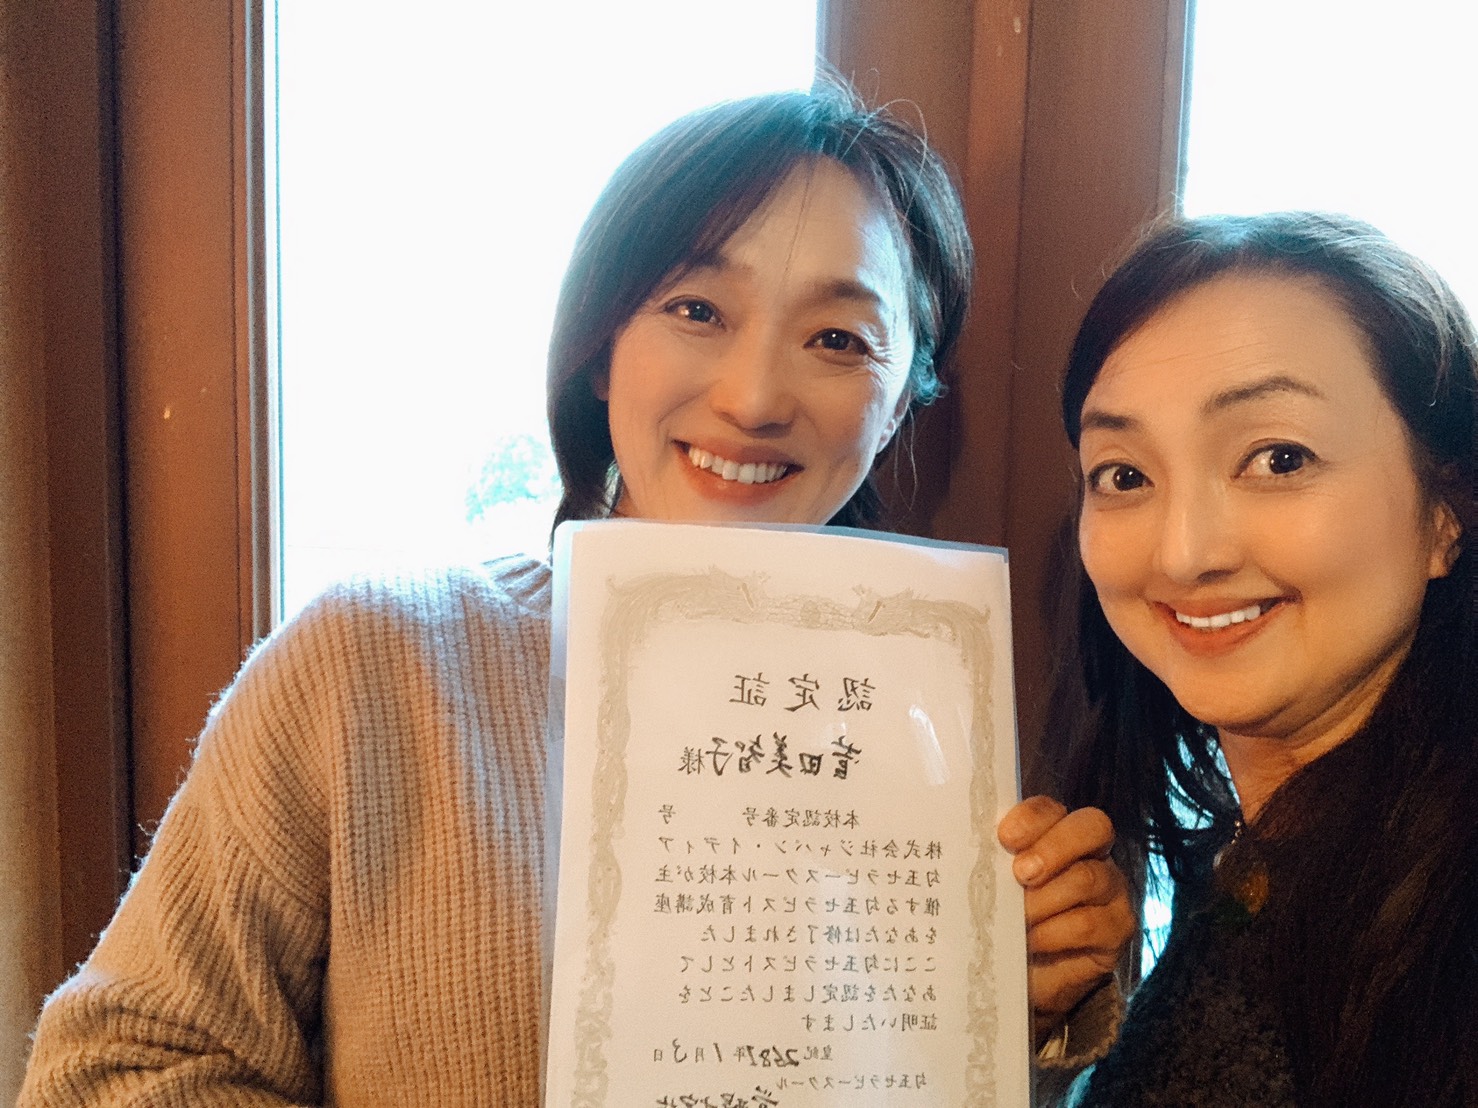 認定証
菅田美智子様
本校認定番号　　号
株式会社ジャパン・イディア
勾玉セラピースクール本校が主
催する勾玉セラピスト育成講座
をあなたは修了されました
ここに勾玉セラピストとして
あなたを認定しましたことを
証明いたします
皇紀2681年1月3日
勾玉セラピースクール